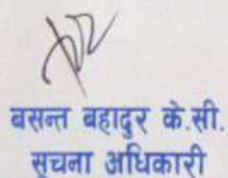 बसन्त बहादुर के.सी.
सूचना अधिकारी